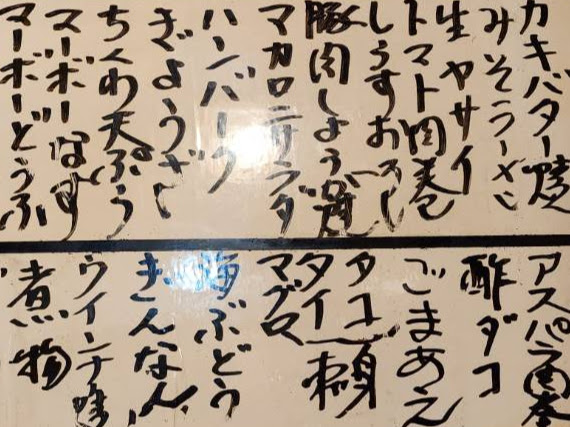 カキバター焼
みそラーメン
生ヤサイ
トマト肉巻
しらすおろし
豚肉しょうが焼
マカロニサラダ
ハンバーグ
ぎょうざ
ちくわ天ぷら
マーボーなす
マーボーどうふ
アスパラ肉巻
酢ダコ
ごまあえ
タコ
タイ
マグロ
刺身
海ぶどう
ぎんなん
ウインナー焼
煮物